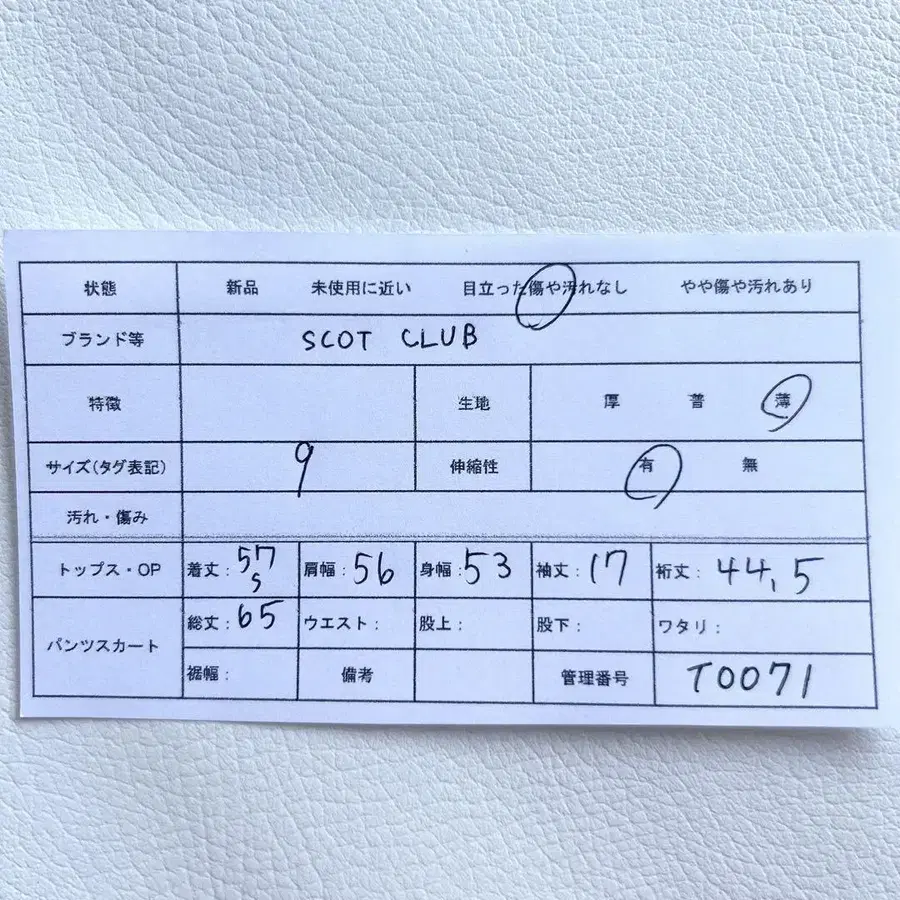 状態 新品 未使用に近い 目立った傷や汚れなし やや傷や汚れあり
ブランド等 SCOT CLUB
特徴 生地 厚 普 薄
サイズ(タグ表記) 9 伸縮性 有 無
汚れ・傷み
トップス・OP 着丈:57 肩幅:56 身幅:53 袖丈:17 裄丈:44,5
s
パンツスカート 総丈:65 ウエスト: 股上: 股下: ワタリ:
裾幅: 備考 管理番号 T0071